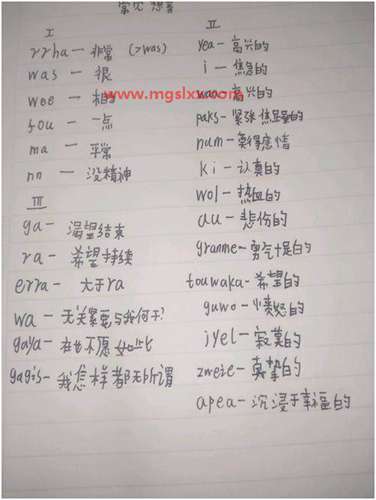 常见 想音
I
rrha — 非常 (>was)
was — 很
wee — 相
fou — 一点
ma — 平常
nn — 没精神
III
ga — 渴望结束
ra — 希望持续
erra — 大于ra
wa — 无关紧要与我何干?
gaya — 在也不愿如此
gagis — 我怎样都无所谓
II
yea — 高兴的
i — 焦急的
高兴的
paks — 紧张焦虑的
num — 莫得感情
ki — 认真的
wol — 热血的
au — 悲伤的
granme — 勇气十足的
touwaka — 希望的
guwo — 愤怒的
iyel — 寂寞的
zweie — 真挚的
apea — 沉浸于幸福的
www.mgslxw.com